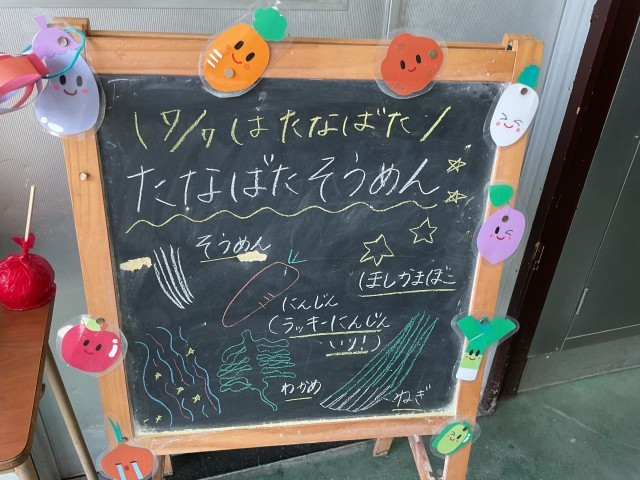 \ 7/7 はたなばた /
たなばたそうめん
そうめん
ほしかまぼこ
にんじん
(ラッキーにんじん
いり!)
わかめ
ねぎ